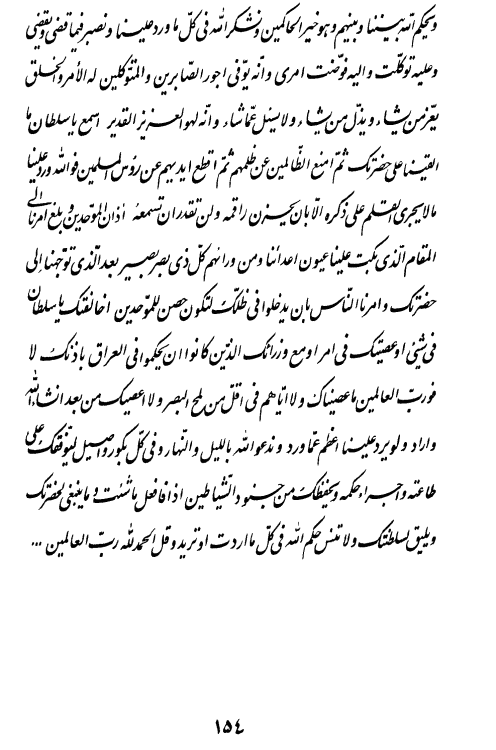 ويحكم الله بيننا وبينهم وهو خير الحاكمين ونشكر الله فى كلّ ما ورد علينا ونصبر فيما قضى ويقضى
وعليه توكّلت واليه فوّضت امرى وانّه يوفّى اجور الصّابرين والمتوكّلين له الأمر والخلق
يعزّ من يشاء ويذلّ من يشاء ولا يسئل عمّا شاء وانّه لهو العزيز القدير اسمع يا سلطان ما
القينا على حضرتك ثمّ امنع الظّالمين عن ظلمهم ثمّ اقطع ايديهم عن رؤس المسلمين فوالله ورد علينا
ما لا يجرى القلم على ذكره الّا بان يحزن راقمه ولن تقدر ان تسمعه اذان الموّحدين وبلغ امرنا الى
المقام الّذى بكت علينا عيون اعدائنا ومن ورائهم كلّ ذى بصر بصير بعد الّذى توجّهنا الى
حضرتك وامرنا النّاس بان يدخلوا فى ظلّك لتكون حصن للموّحدين اخالفتك يا سلطان
فى شيئ او عصيتك فى امر او مع وزرائك الذّين كانوا ان يحكموا فى العراق باذنك لا
فوربّ العالمين ما عصيناك ولا ايّاهم فى اقلّ من لمح البصر ولا اعصيك من بعد انشاءالله
واراد ولو يرد علينا اعظم عمّا ورد وندعوا الله بالليل والنّهار وفى كلّ بكور واصيل ليتوفّقك على
طاعته واجراء حكمه ويحفظك من جنود الشّياطين اذا فافعل ما شئت وما ينبغى لحضرتك
ويليق لسلطنتك ولا تنس حكم الله فى كلّ ما اردت او تريد وقل الحمد لله ربّ العالمين ...
١٥٤